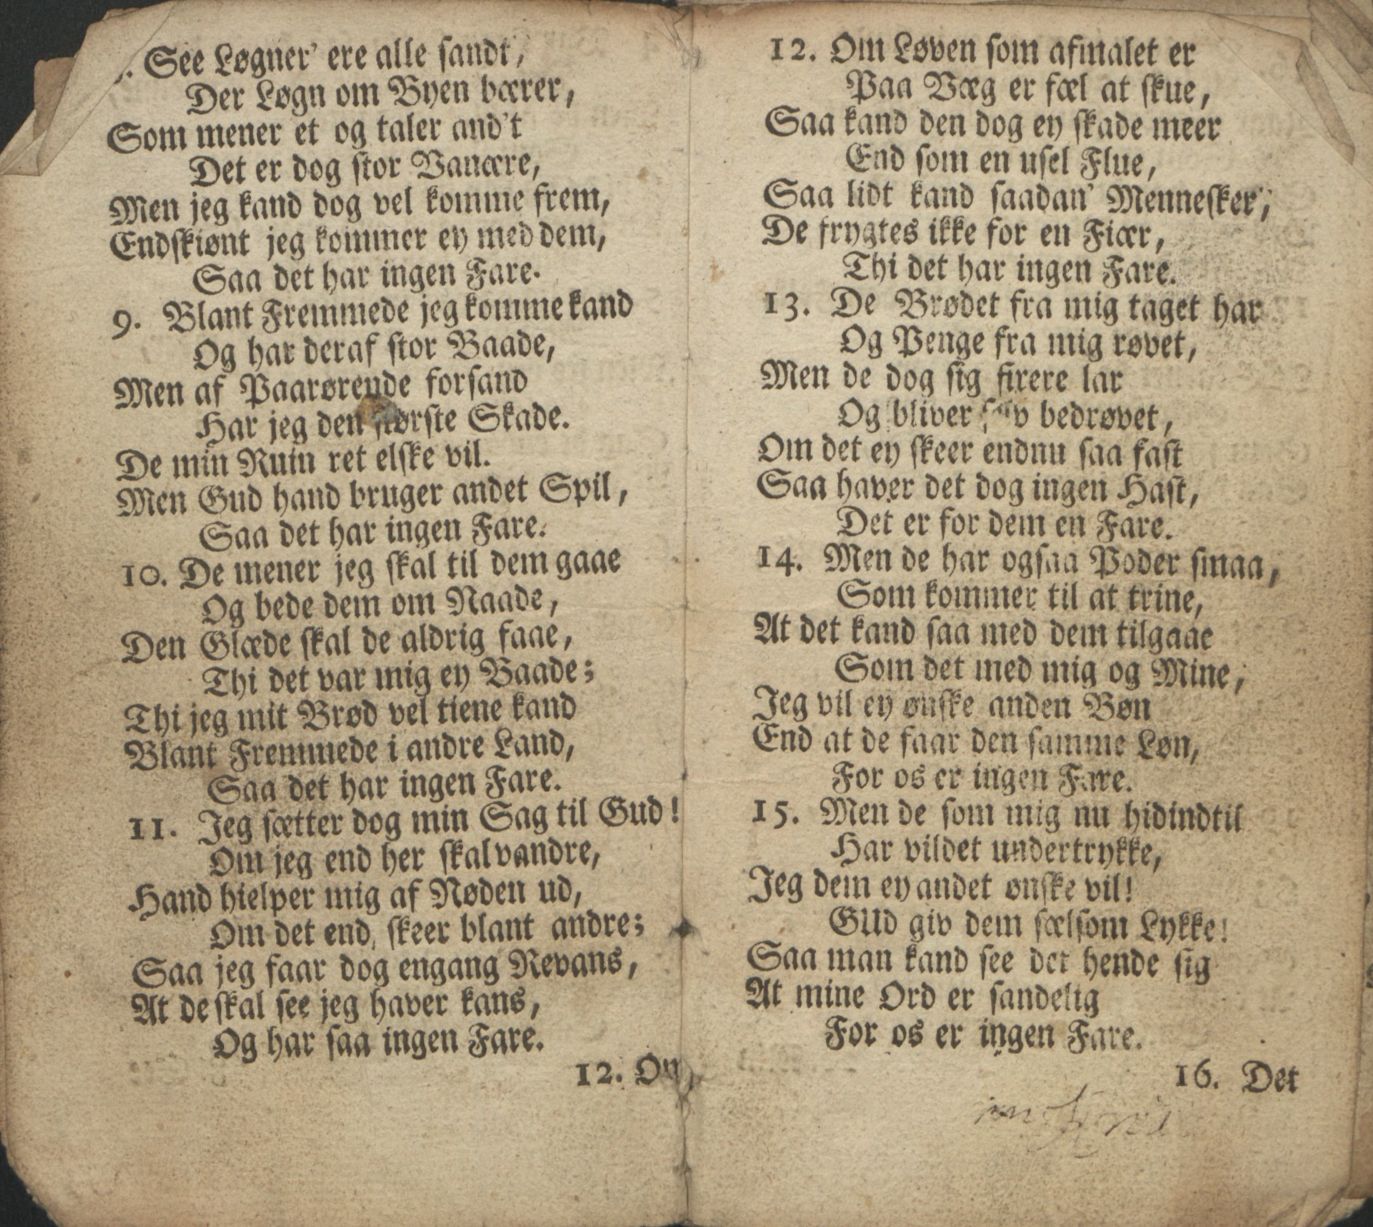 See Løgner' ere alle sandt,
Der Løgn om Byen bærer,
Som mener et og taler and't
Det er dog stor Vanære,
Men jeg kand dog vel komme frem,
Endskiønt jeg kommer ey med dem,
Saa det har ingen Fare.
9. Blant Fremmede jeg komme kand
Og har deraf stor Baade,
Men af Paarørende forsand
Har jeg den største Skade.
De min Ruin ret elske vil.
Men Gud hand bruger andet Spil,
Saa det har ingen Fare.
10. De mener jeg skal til dem gaae
Og bede dem om Naade,
Den Glæde skal de aldrig faae,
Thi det var mig ey Baade;
Thi jeg mit Brød vel tiene kand
Blant Fremmede i andre Land,
Saa det har ingen Fare.
11. Jeg sætter dog min Sag til Gud!
Om jeg end her skal vandre,
Hand hielper mig af Nøden ud,
Om det end skeer blant andre;
Saa jeg faar dog engang Revans,
At de skal see jeg haver kans,
Og har saa ingen Fare.
12. Om
12. Om Løven som afmalet er
Paa Væg er fæl at skue,
Saa kand den dog ey skade meer
End som en usel Flue,
Saa lidt kand saadan' Mennesker,
De frygtes ikke for en Fiær,
Thi det har ingen Fare.
13. De Brødet fra mig taget har
Og Penge fra mig røvet,
Men de dog sig fixere lar
Og bliver selv bedrøvet,
Om det ey skeer endnu saa fast
Saa haver det dog ingen Hast,
Det er for dem en Fare.
14. Men de har ogsaa Poder smaa,
Som kommer til at trine,
At det kand saa med dem tilgaae
Som det med mig og Mine,
Jeg vil ey ønske anden Bøn
End at de faar den samme Løn,
For os er ingen Fare.
15. Men de som mig nu hidindtil
Har vildet undertrykke,
Jeg dem ey andet ønske vil!
GUd giv dem sælsom Lykke!
Saa man kand see det hende sig
At mine Ord er sandelig
For os er ingen Fare.
16. Det